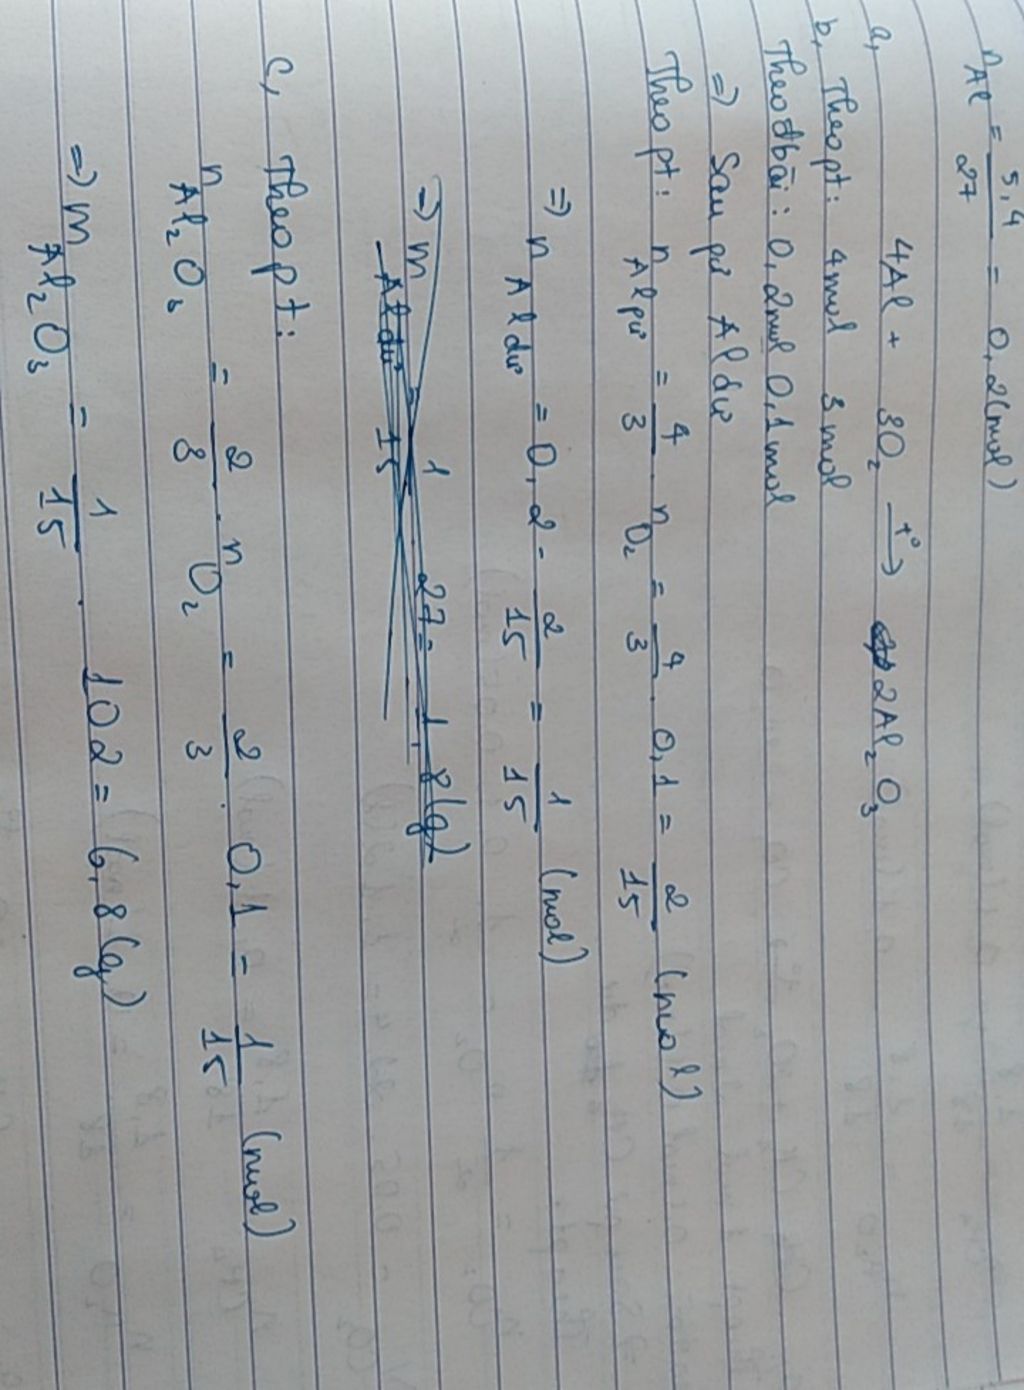 nAl = 5,4/27 = 0,2(mol)
a, 4Al + 3O₂ –t°→ 2Al₂O₃
b, Theo pt: 4mol 3mol
Theo đbài: 0,2mol 0,1mol
=> Sau pứ Al dư
Theo pt: nAl pứ = 4/3 . nO₂ = 4/3 . 0,1 = 2/15 (mol)
=> nAl dư = 0,2 - 2/15 = 1/15 (mol)
=> mAl dư = 1/15 . 27 = 1,8(g)
c, Theo pt:
nAl₂O₃ = 2/3 . nO₂ = 2/3 . 0,1 = 1/15 (mol)
=> mAl₂O₃ = 1/15 . 102 = 6,8(g)